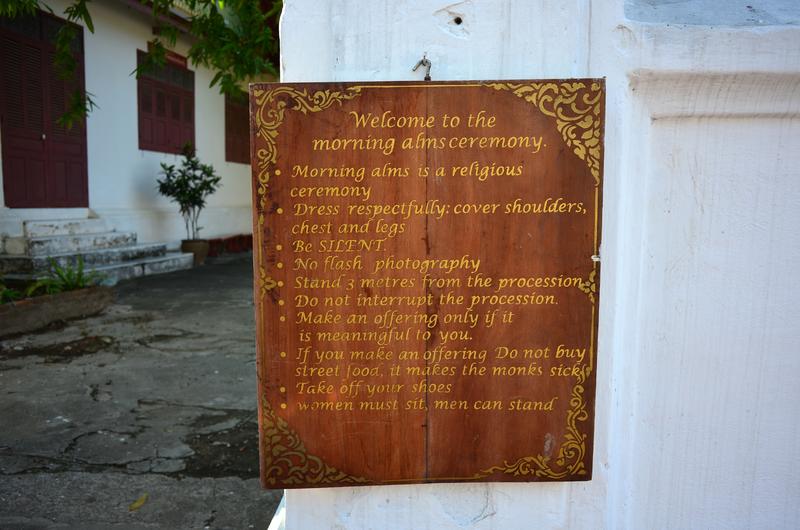 Welcome to the
morning alms ceremony.
• Morning alms is a religious
ceremony
• Dress respectfully: cover shoulders,
chest and legs
• Be SILENT.
• No flash photography
• Stand 3 metres from the procession
• Do not interrupt the procession.
• Make an offering only if it
is meaningful to you.
• If you make an offering Do not buy
street food, it makes the monks sick
• Take off your shoes
• women must sit, men can stand